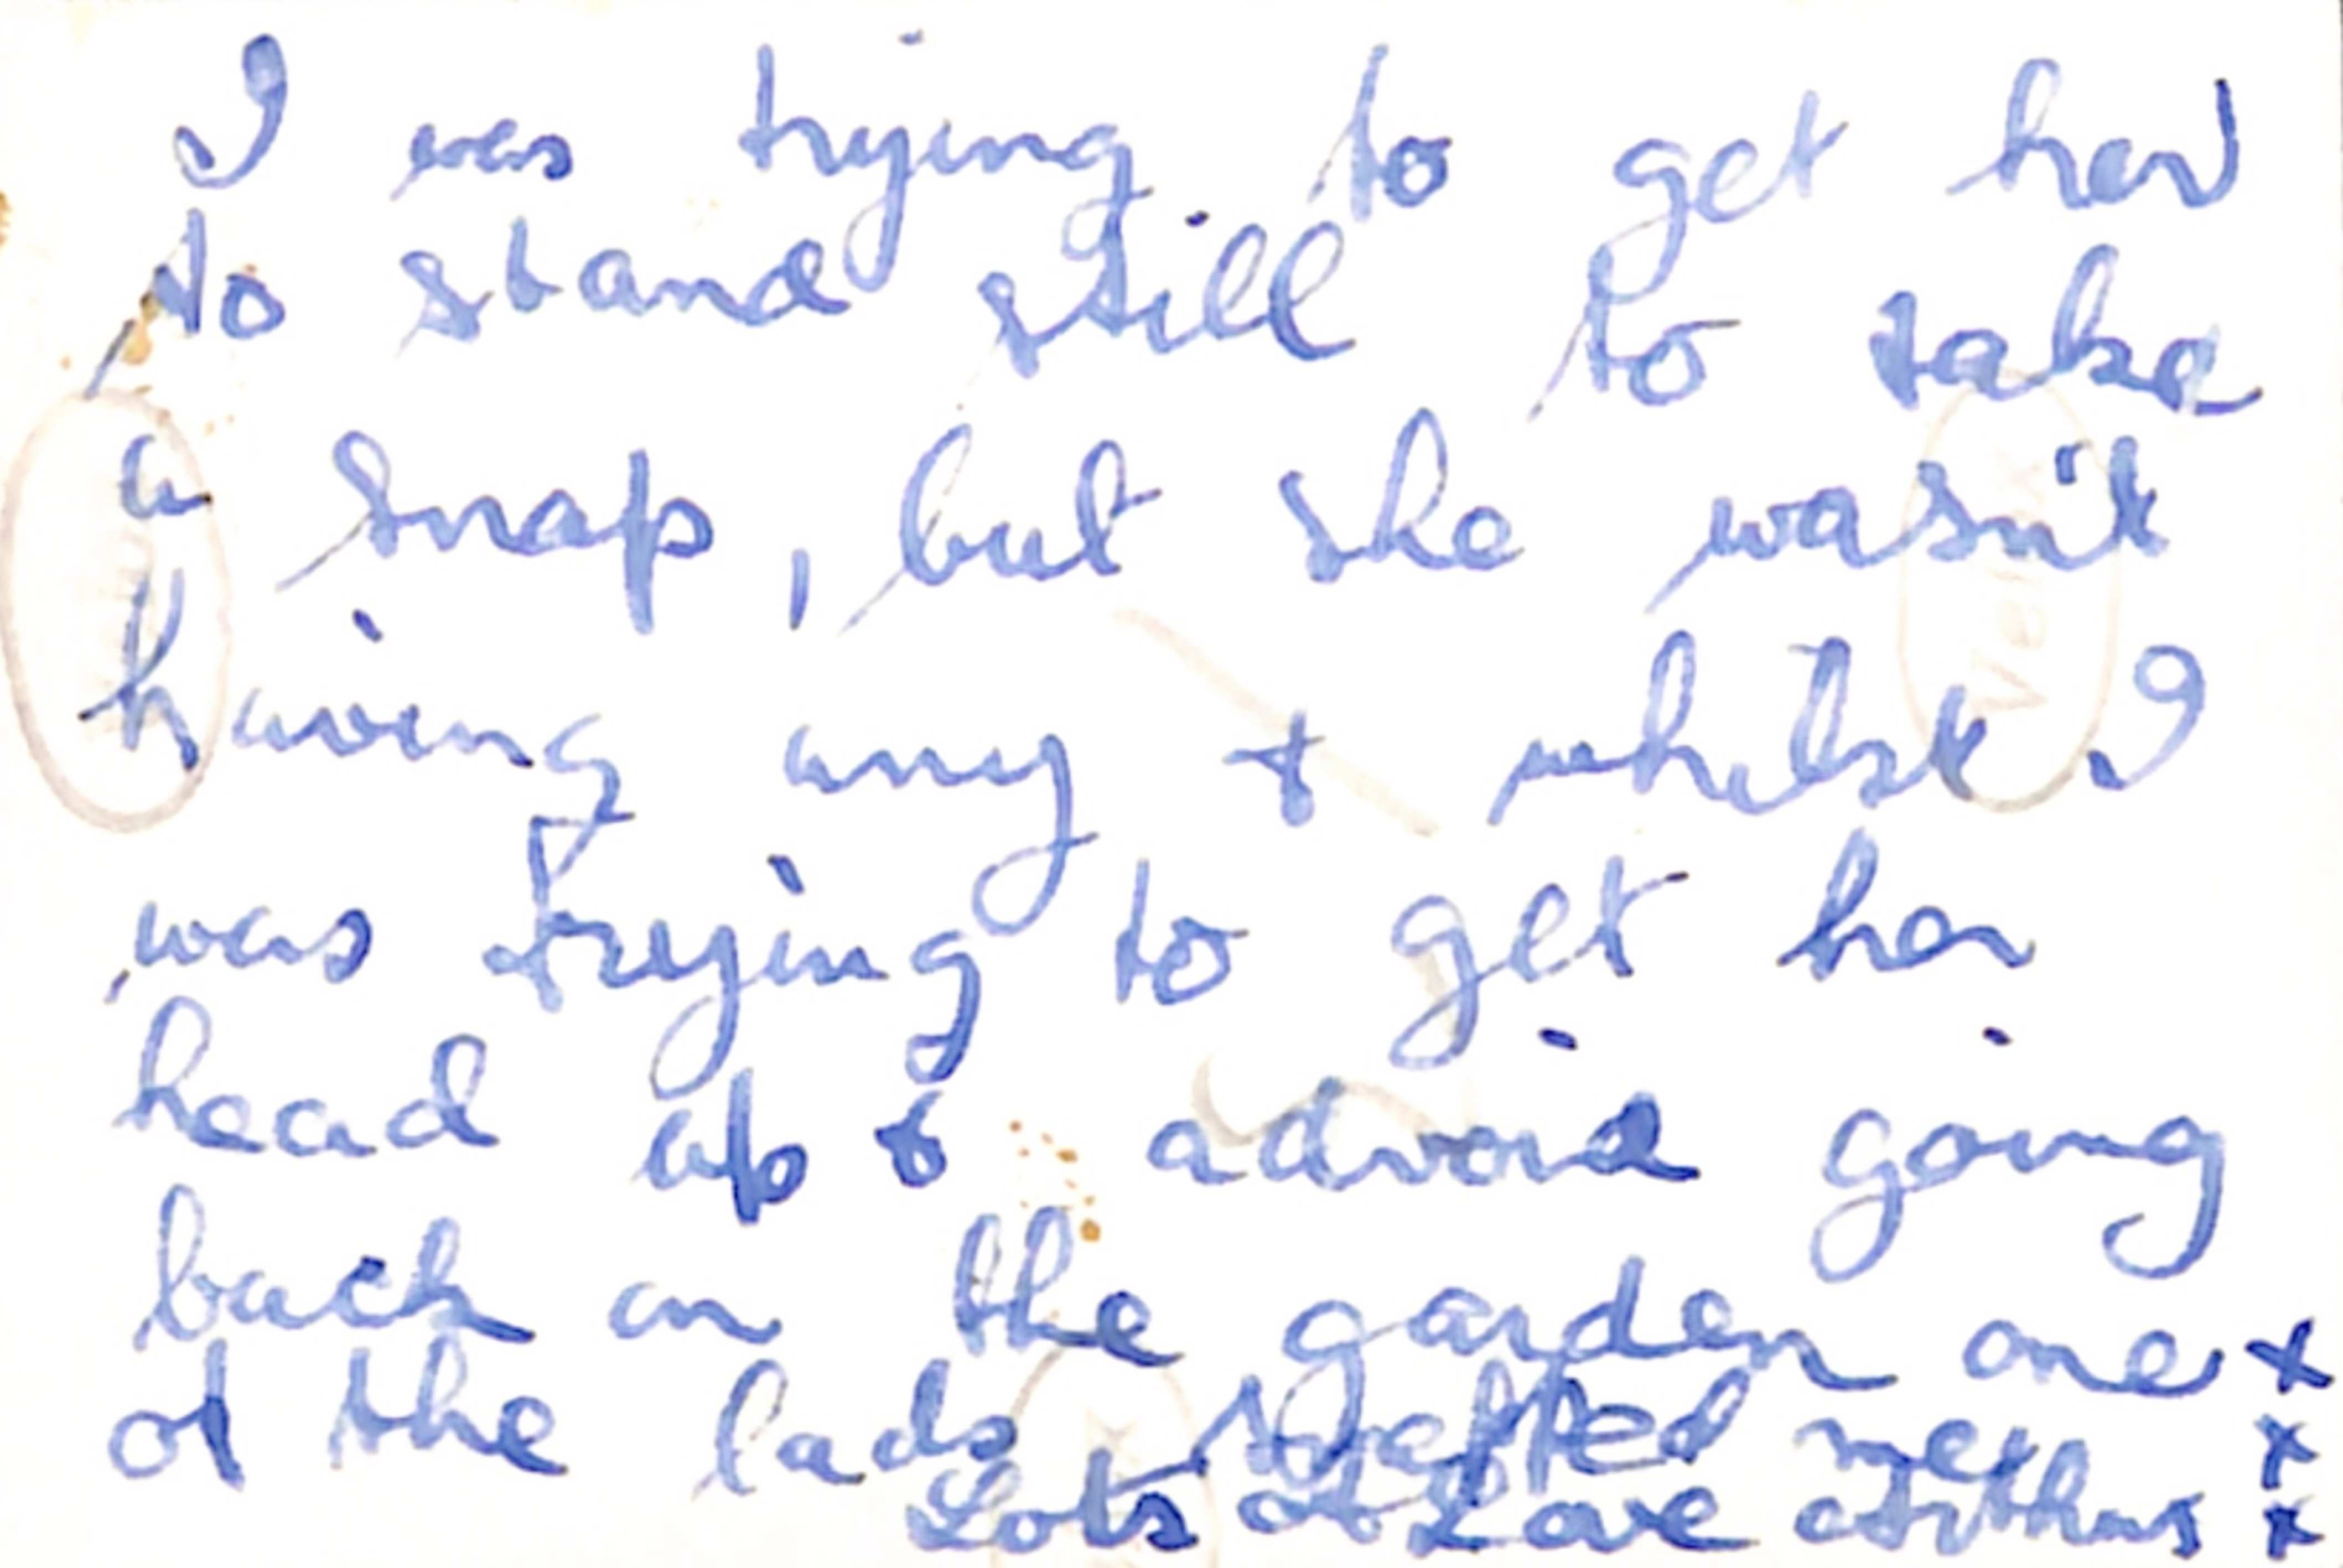 I was trying to get her
to stand still to take
a snap, but she wasn't
having any + whilst I
was trying to get her
head up & advoid going
back on the garden one x
of the lads snapped me x
Lots of Love Arthur x